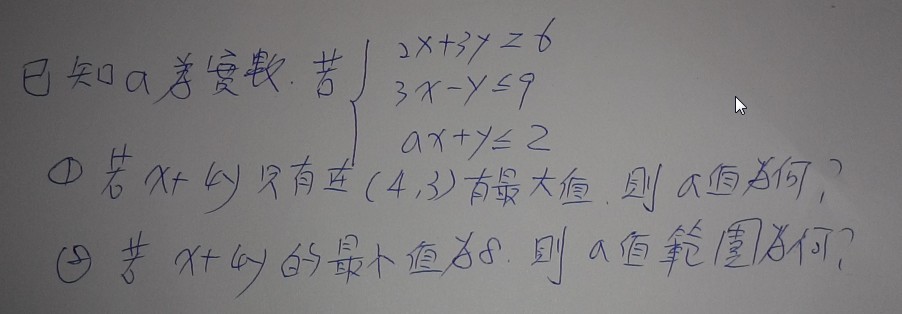 已知a為實數.若{2x+3y≥6
3x-y≤9
ax+y≤2
① 若 x+4y 只有在 (4,3) 有最大值.則 a值為何?
② 若 x+4y 的最小值為8.則 a值範圍為何?